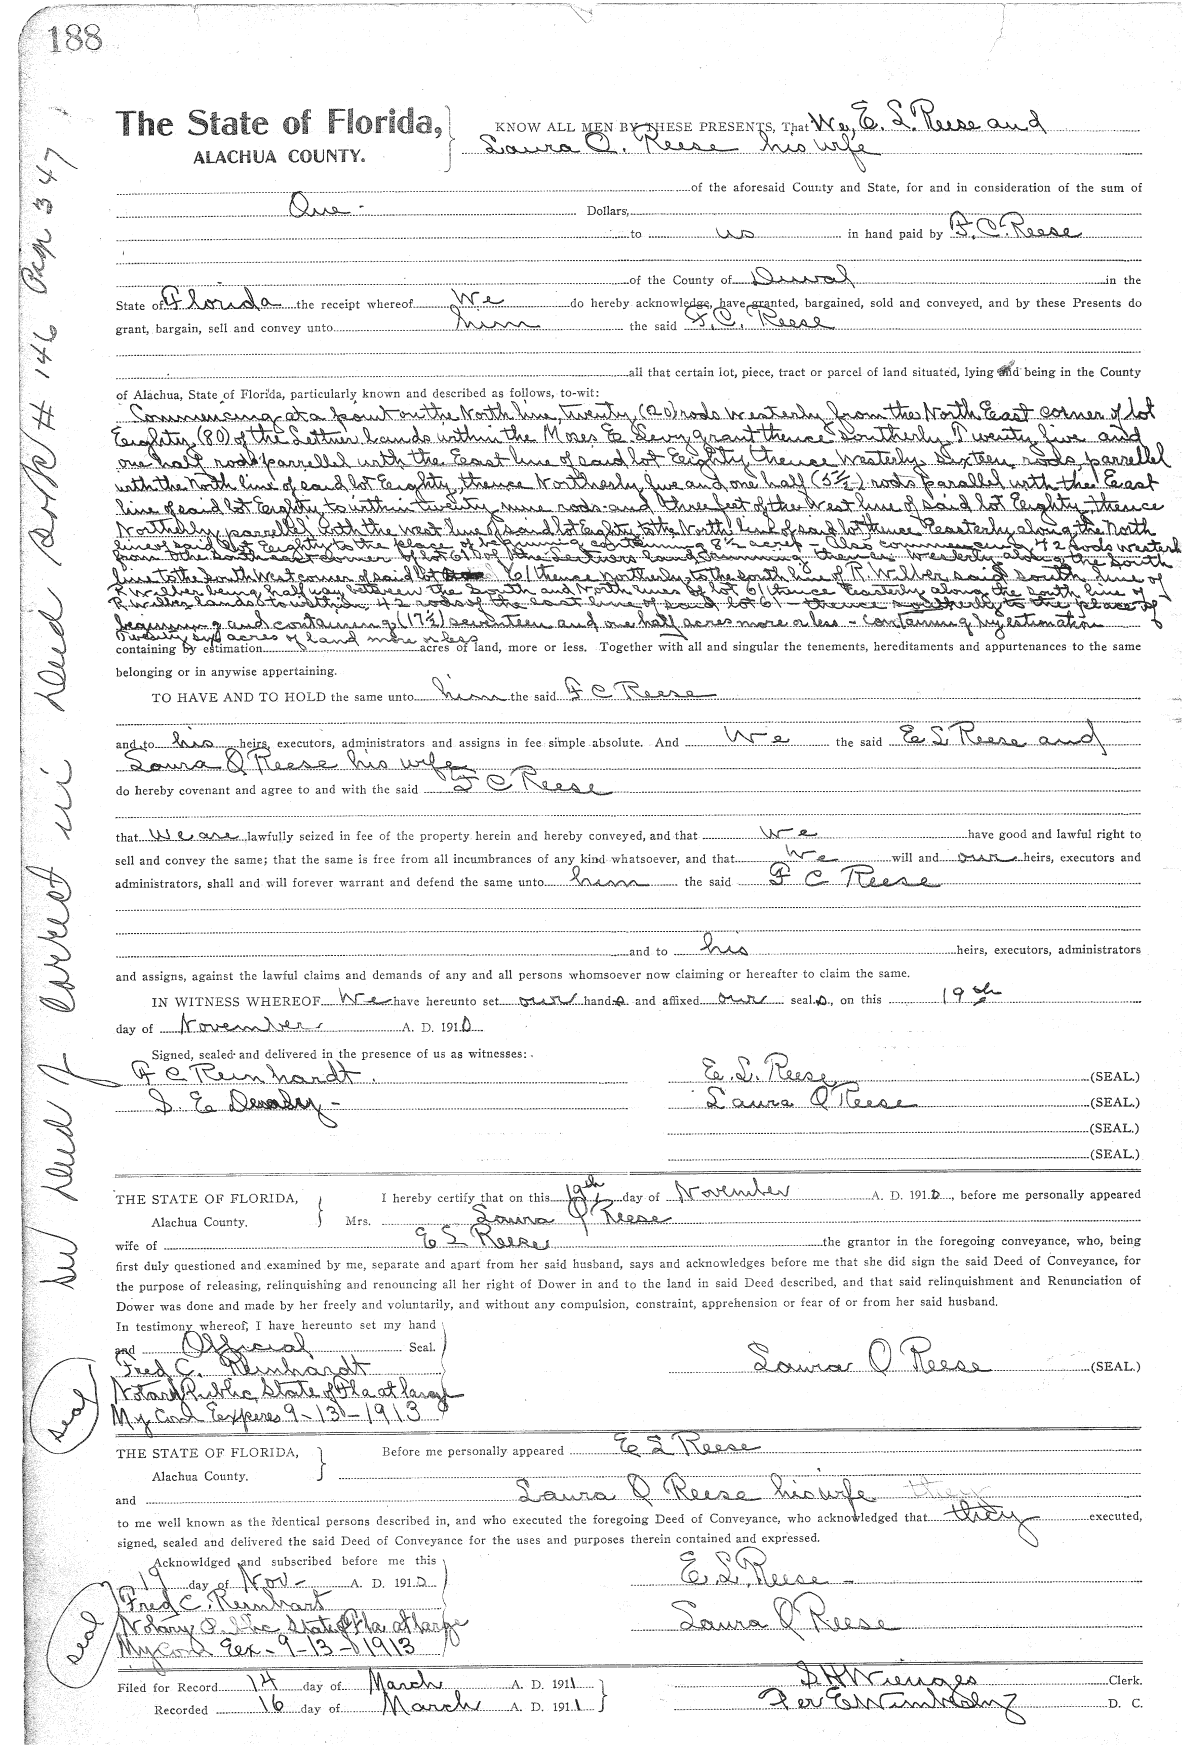 188
The State of Florida,
ALACHUA COUNTY.
KNOW ALL MEN BY THESE PRESENTS, That We, E. L. Reese and
Laura O. Reese his wife
of the aforesaid County and State, for and in consideration of the sum of
One - Dollars,
to us in hand paid by F. C. Reese
of the County of Duval in the
State of Florida the receipt whereof We do hereby acknowledge, have granted, bargained, sold and conveyed, and by these Presents do
grant, bargain, sell and convey unto him the said F. C. Reese
all that certain lot, piece, tract or parcel of land situated, lying and being in the County
of Alachua, State of Florida, particularly known and described as follows, to-wit:
Commencing at a point on the North line, twenty (20) rods Westerly from the North East corner of lot
Eighty (80) of the Lettner Lands within the Moses E. Levy grant thence Southerly Twenty five and
one half rods parrellel with the East line of said lot Eighty thence Westerly sixteen rods, parrellel
with the North line of said lot Eighty, thence Northerly five and one half (5½) rods parallel with the East
line of said lot Eighty to within twenty nine rods and three feet of the West line of said lot Eighty, thence
Northerly parrellel with the west line of said lot Eighty to the North line of said lot thence Easterly along the North
line of said lot Eighty to the place of beginning containing 8½ acres - Also commencing 42 rods westerly
from the south east corner of lot 61 of the Lettner land running thence Westerly along the south
line to the South West corner of said lot 61 thence Northerly to the south line of R. Wilber said south line of
R Wilber being half way between the South and North lines of lot 61 thence Easterly along the south line of
R Wilber lands to within 42 rods of the east line of said lot 61 - thence southerly to the place of
beginning and containing (17½) seventeen and one half acres more or less - containing by estimation
Twenty six acres of land more or less
containing by estimation acres of land, more or less. Together with all and singular the tenements, hereditaments and appurtenances to the same
belonging or in anywise appertaining.
TO HAVE AND TO HOLD the same unto him the said F C Reese
and to his heirs, executors, administrators and assigns in fee simple absolute. And We the said E L Reese and
Laura O Reese his wife
do hereby covenant and agree to and with the said F C Reese
that We are lawfully seized in fee of the property herein and hereby conveyed, and that We have good and lawful right to
sell and convey the same; that the same is free from all incumbrances of any kind whatsoever, and that We will and our heirs, executors and
administrators, shall and will forever warrant and defend the same unto him the said F C Reese
and to his heirs, executors, administrators
and assigns, against the lawful claims and demands of any and all persons whomsoever now claiming or hereafter to claim the same.
IN WITNESS WHEREOF We have hereunto set our hands and affixed our seals, on this 19th
day of November A. D. 1910
Signed, sealed and delivered in the presence of us as witnesses:
F C Reinhardt. E. L. Reese (SEAL.)
S. E Laura O Reese (SEAL.)
(SEAL.)
(SEAL.)
THE STATE OF FLORIDA,
Alachua County.
I hereby certify that on this 19th day of November A. D. 1910, before me personally appeared
Mrs. Laura O Reese
wife of E L Reese the grantor in the foregoing conveyance, who, being
first duly questioned and examined by me, separate and apart from her said husband, says and acknowledges before me that she did sign the said Deed of Conveyance, for
the purpose of releasing, relinquishing and renouncing all her right of Dower in and to the land in said Deed described, and that said relinquishment and Renunciation of
Dower was done and made by her freely and voluntarily, and without any compulsion, constraint, apprehension or fear of or from her said husband.
In testimony whereof, I have hereunto set my hand
and Official Seal.
Fred C. Reinhardt Laura O Reese (SEAL.)
Notary Public, State of Fla at large
My Com Eexpires 9-13-1913
seal
THE STATE OF FLORIDA,
Alachua County.
Before me personally appeared E L Reese
and Laura O Reese his wife they
to me well known as the identical persons described in, and who executed the foregoing Deed of Conveyance, who acknowledged that they executed,
signed, sealed and delivered the said Deed of Conveyance for the uses and purposes therein contained and expressed.
Acknowldged and subscribed before me this
19 day of Nov- A. D. 1910 E. L. Reese -
Fred C. Reinhart
Notary Public State of Fla at large Laura O Reese
My Com Eex - 9-13-1913
seal
Filed for Record 14 day of March A. D. 1911 S H Wienges Clerk.
Recorded 16 day of March A. D. 1911 Per E Wimberly D. C.
See deed of correct in deed book # 146 Page 347